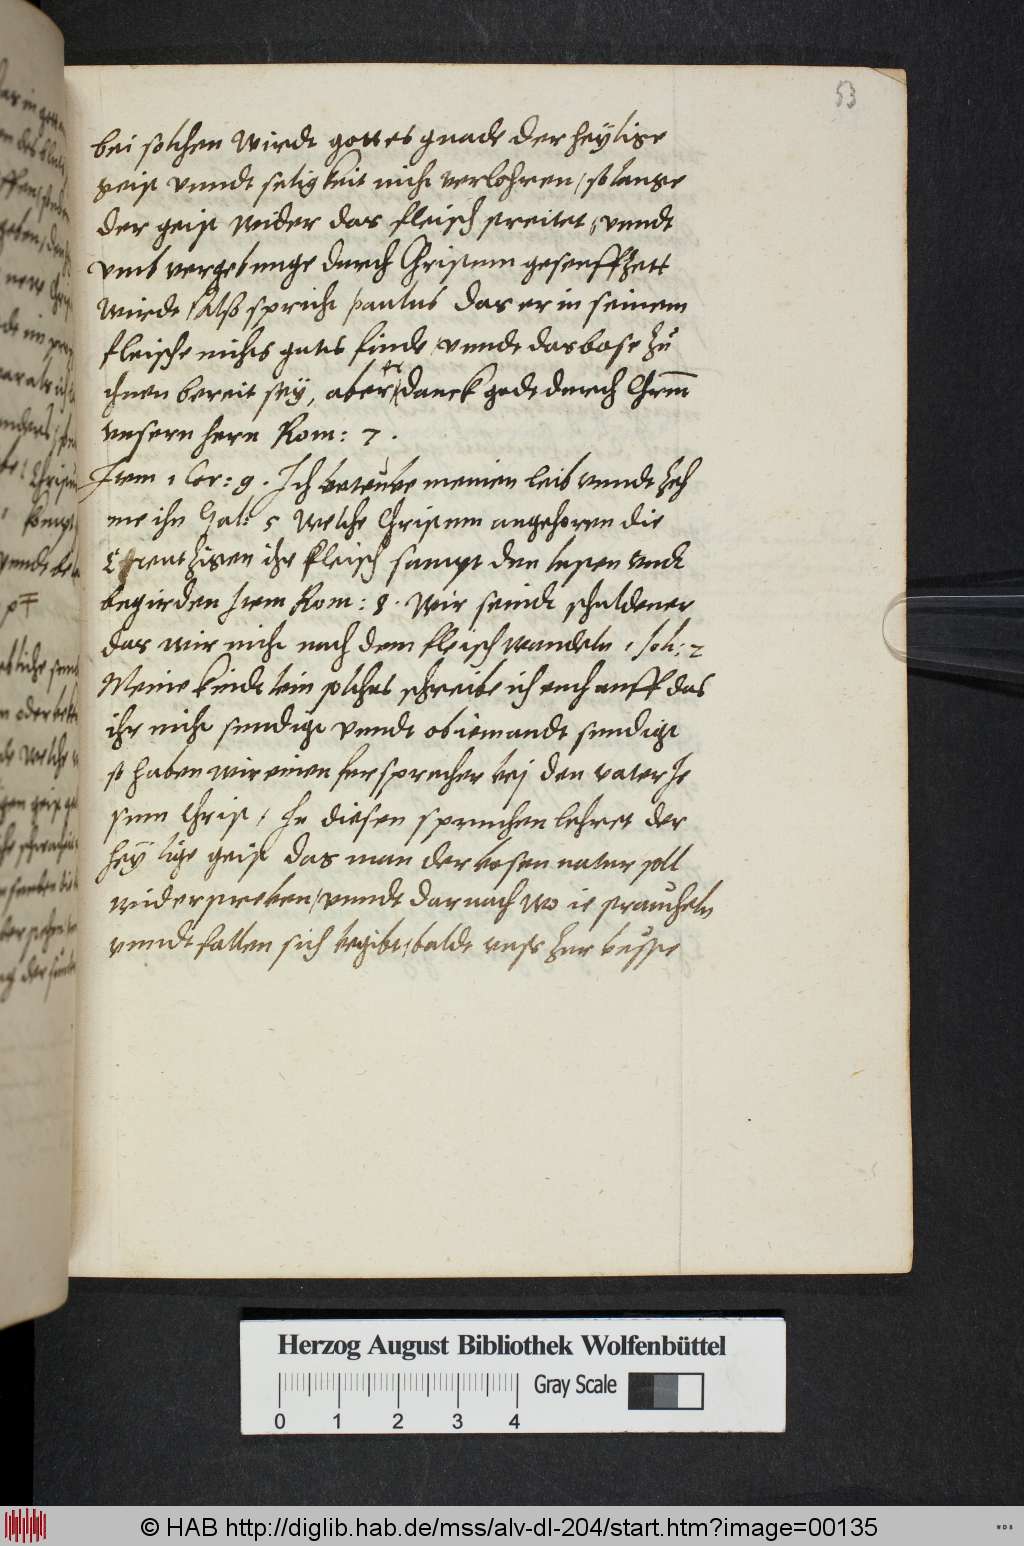 53
bei solchen wirdt gottes gnade der heylige
geist vnndt seligkeit nicht verlohren / so lange
der geist wider das fleisch streitet, vnndt
vmb vergebunge durch Christum geseuffhett
wirdt / Alß spricht paulus das er in seinem
fleische nichts guts finde / vnndt das bose zu
ihnen bereit sey, aber danck gode durch Chrm
vnsern hern Rom: 7.
Item 1 Cor: 9. Ich beteube meinen leib vnndt zeh
me ihn Gal: 5 Welche Christum angehoren die
Creutzigen ihr fleisch sampt den lusten vndt
begirden Item Rom: 8. Wir seindt schuldener
das wir nicht nach dem fleisch wandeln 1 Joh: 2
Meine kindtlein solches schreibe ich euch auff das
ihr nicht sundigt vnndt ob iemandt sundigt
so haben wir einen fursprecher bej den vater Je
sum Christ / In diesen spruchen lehret der
heylige geist das man der bosen natur soll
widerstreben / vnndt darnach wo ie straucheln
vnndt fallen sich begibt, baldt vnss zur busse
Herzog August Bibliothek Wolfenbüttel
Gray Scale
0 1 2 3 4
© HAB http://diglib.hab.de/mss/alv-dl-204/start.htm?image=00135